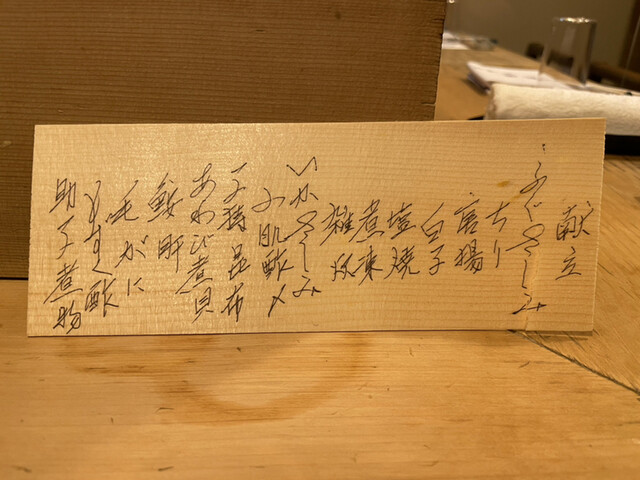 献立
ふぐさしみ
ちり
唐揚
白子
塩焼
煮凍
雑炊
いかさしみ
小肌酢〆
子持昆布
あわび煮貝
鮟肝
毛がに
もずく酢
助子煮物